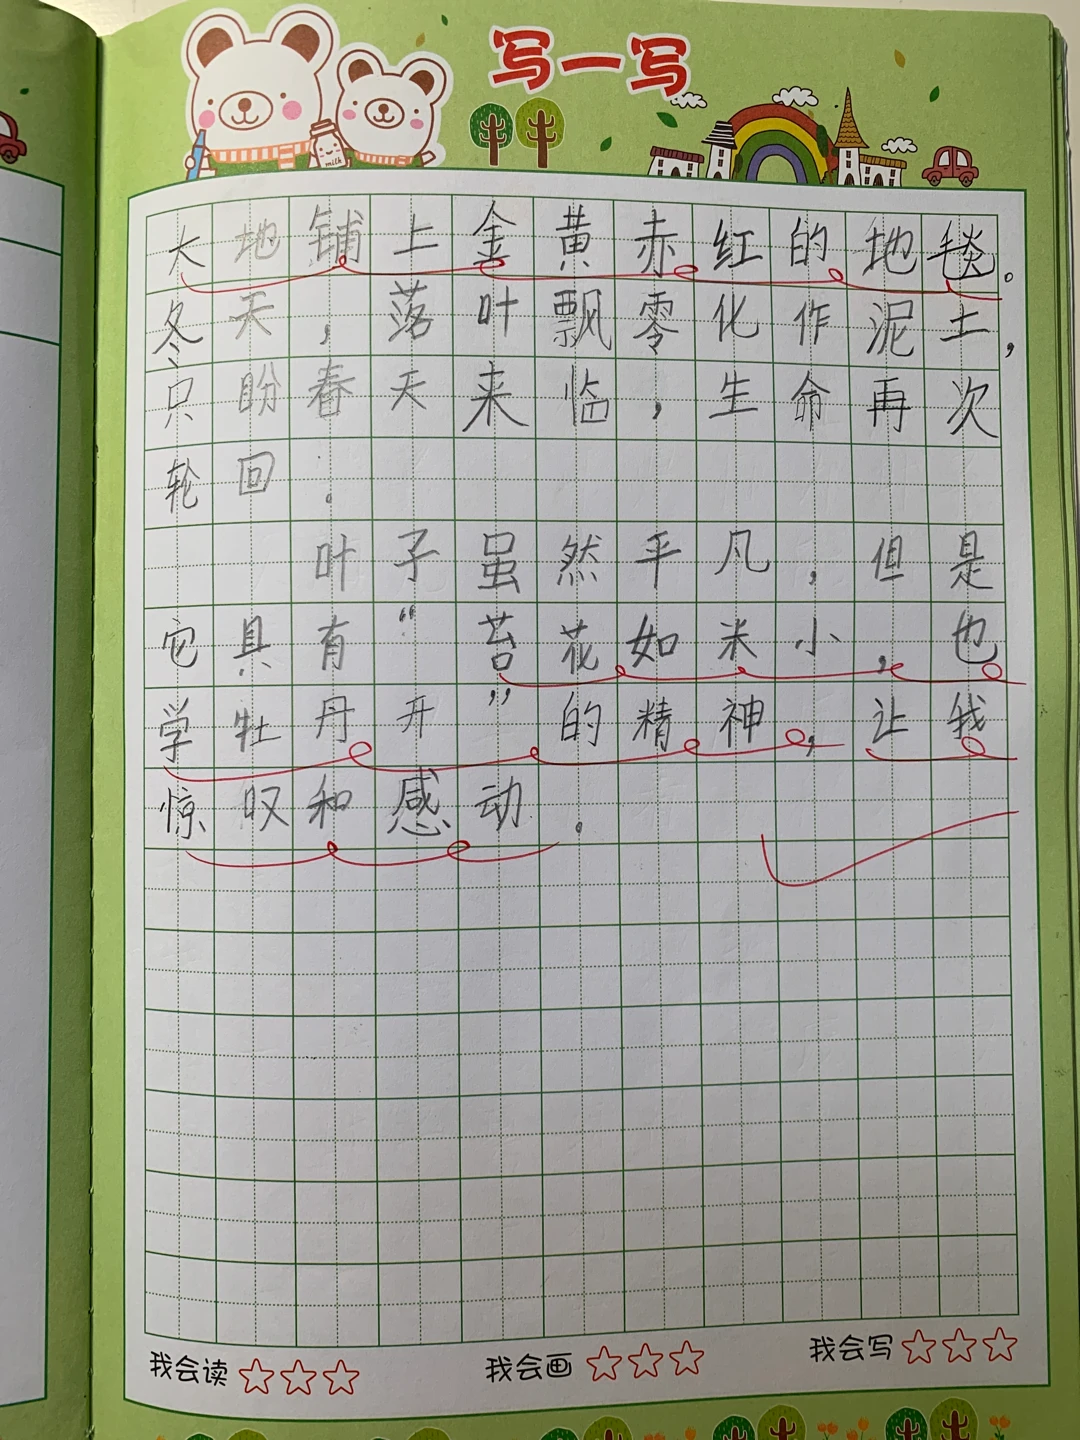 写一写
milk
大地铺上金黄赤红的地毯。
冬天，落叶飘零化作泥土，
只盼春天来临，生命再次
轮回。
叶子虽然平凡，但是
它具有“苔花如米小，也
学牡丹开”的精神，让我
惊叹和感动。
我会读 我会画 我会写